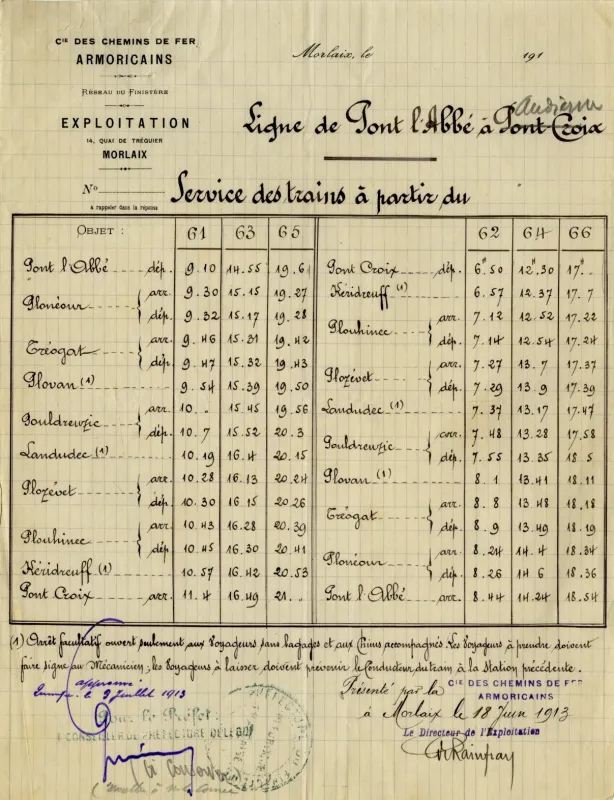 Cie DES CHEMINS DE FER
ARMORICAINS
RÉSEAU DU FINISTÈRE
EXPLOITATION
14, QUAI DE TRÉGUIER
MORLAIX
No
A rappeler dans la réponse
Morlaix, le 191
Audierne
Ligne de Pont l'Abbé à Pont-Croix
Service des trains à partir du
OBJET : 61 63 65
Pont l'Abbé dép. 9.10 14.55 19.6
Plonéour arr. 9.30 15.15 19.27
dép. 9.32 15.17 19.28
Tréogat arr. 9.46 15.31 19.42
dép. 9.47 15.32 19.43
Plovan (1) 9.54 15.39 19.50
Pouldreuzic arr. 10.„ 15.45 19.56
dép. 10.7 15.52 20.3
Landudec (1) 10.19 16.4 20.15
Plozévet arr. 10.28 16.13 20.24
dép. 10.30 16.15 20.26
Plouhinec arr. 10.43 16.28 20.39
dép. 10.45 16.30 20.41
Kéridreuff (1) 10.57 16.42 20.53
Pont Croix arr. 11.4 16.49 21.„
62 64 66
Pont Croix dép. 6H.50 12H.30 17H.„
Kéridreuff (1) 6.57 12.37 17.7
Plouhinec arr. 7.12 12.52 17.22
dép. 7.14 12.54 17.24
Plozévet arr. 7.27 13.7 17.37
dép. 7.29 13.9 17.39
Landudec (1) 7.37 13.17 17.47
Pouldreuzic arr. 7.48 13.28 17.58
dép. 7.55 13.35 18.5
Plovan (1) 8.1 13.41 18.11
Tréogat arr. 8.8 13.48 18.18
dép. 8.9 13.49 18.19
Plonéour arr. 8.24 14.4 18.34
dép. 8.26 14.6 18.36
Pont l'Abbé arr. 8.44 14.24 18.54
(1) Arrêt facultatif ouvert seulement aux Voyageurs sans bagages et aux Chiens accompagnés. Les Voyageurs à prendre doivent
faire signe au Mécanicien ; les Voyageurs à laisser doivent prévenir le Conducteur du train à la Station précédente.
approuvé
Quimper le 9 Juillet 1913
Pour le Préfet :
CONSEILLER DE PRÉFECTURE DÉLÉGUÉ
Présenté par la Cie DES CHEMINS DE FER
ARMORICAINS
à Morlaix le 18 Juin 1913
Le Directeur de l'Exploitation